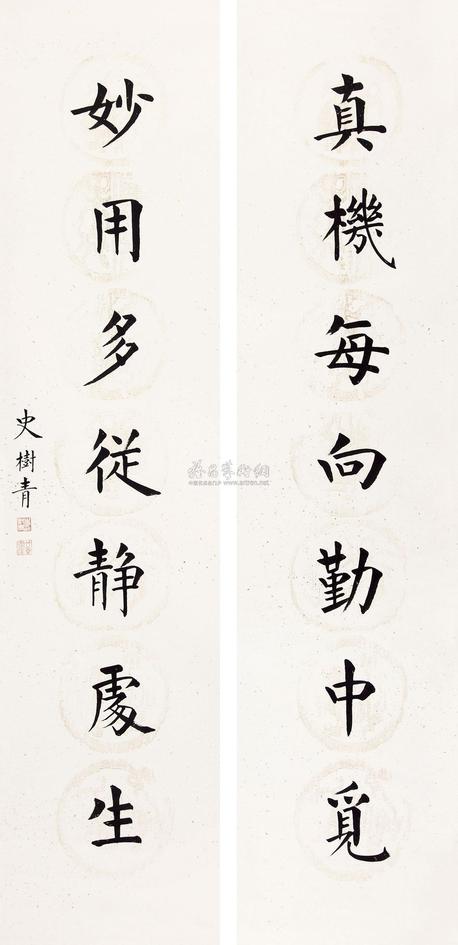 真機每向勤中覓
妙用多從静處生
史樹青
www.artron.net